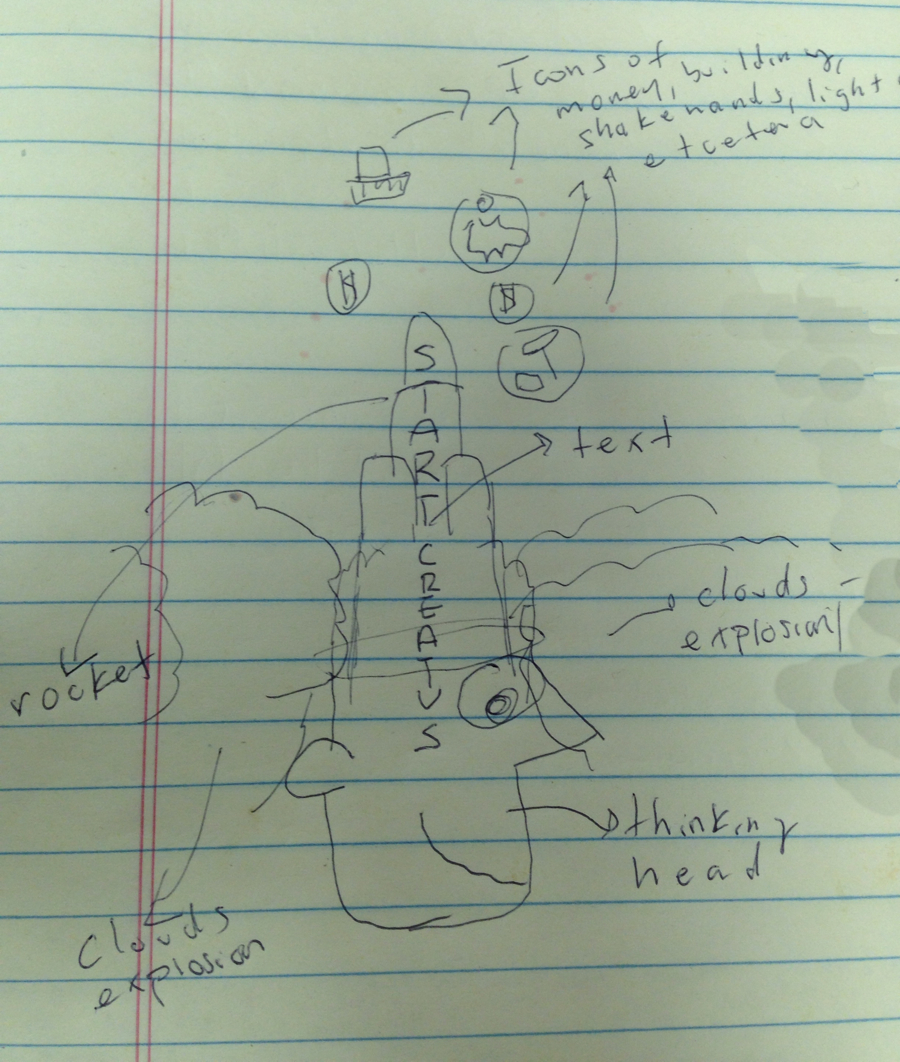 Icons of
money, building,
shakehands, light
etcetera
S
T
A
R
T
C
R
E
A
T
V
S
text
rocket
clouds -
explosion
thinking
head
clouds
explosion